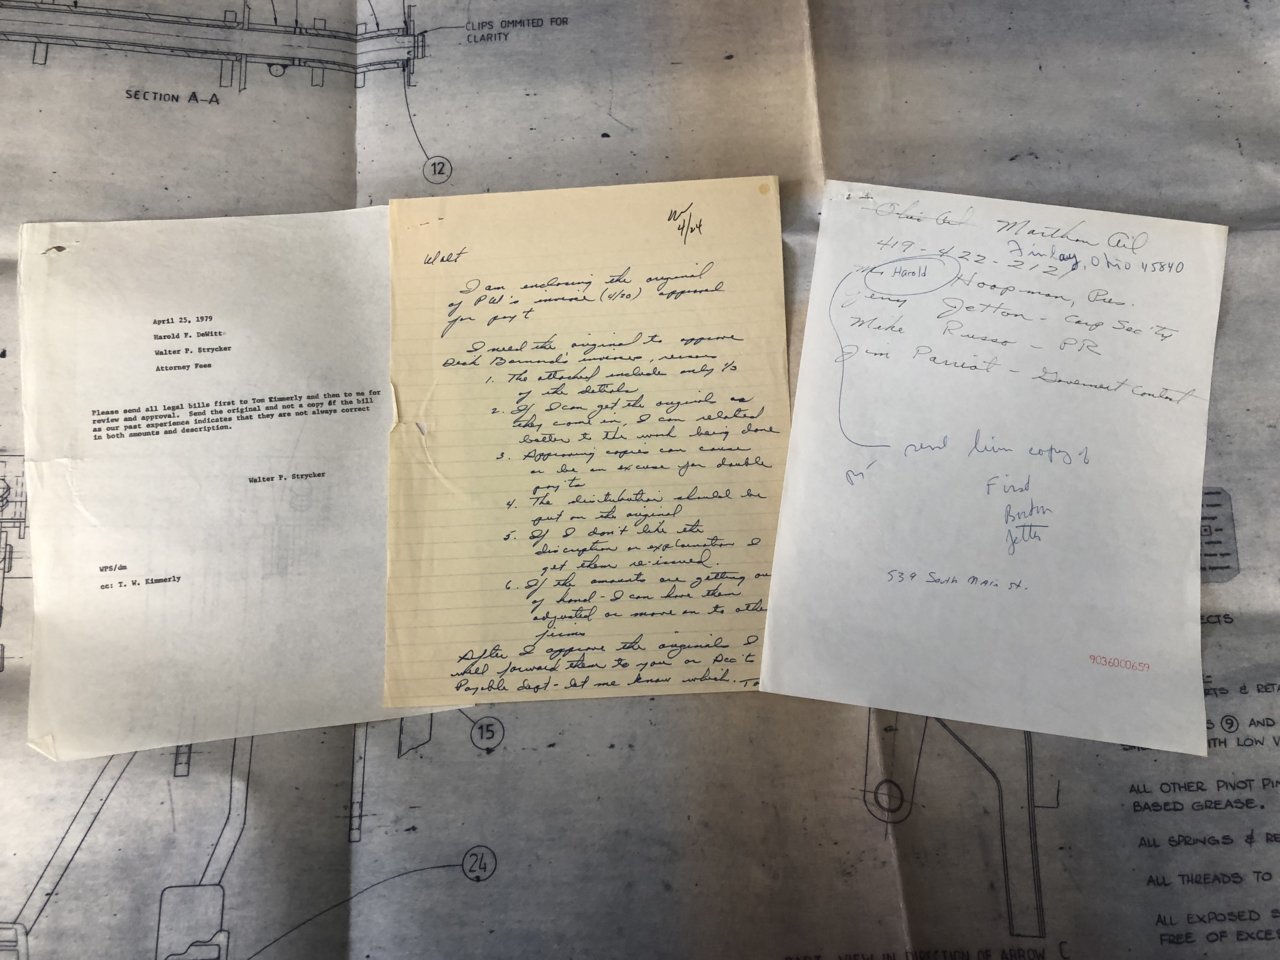 CLIPS OMMITED FOR
CLARITY
SECTION A-A
12
April 25, 1979
Harold F. DeWitt
Walter P. Strycker
Attorney Fees
Please send all legal bills first to Tom Kimmerly and then to me for
review and approval. Send the original and not a copy of the bill
as our past experience indicates that they are not always correct
in both amounts and description.
Walter P. Strycker
WPS/dm
cc: T. W. Kimmerly
4/24
Walt
I am enclosing the original
of PW's invoice (4/20) approved
for pay't
I need the original to approve
Dick Barnard's invoices, reasons
1. The attached include only 1/3
of the details
2. If I can get the originals as
they come in, I can related
better to the work being done
3. Approving copies can cause
or be an excuse for double
pay'ts
4. The distribution should be
put on the original
5. If I don't like the
discription or explanation I
get them re-issued.
6. If the amounts are getting out
of hand - I can have them
adjusted or move on to other
firms
After I approve the originals I
will forward them to you or Acc'ts
Payable Dept - let me know which.
Marthon Oil
419-422-2121
Finlay, Ohio 45840
Harold Hoopman, Pres.
Jerry Jetton - Corp Sec'ity
Mike Russo - PR
Jim Parriot - Government Contact
send him copy of
First
Boston
Letter
539 South Main st.
9036000659
15
24
ECTS
RTS & RETA
S 9 AND
ITH LOW V
ALL OTHER PIVOT PIN
BASED GREASE.
ALL SPRINGS & RE
ALL THREADS TO
ALL EXPOSED S
FREE OF EXCES
PART VIEW IN DIRECTION OF ARROW C